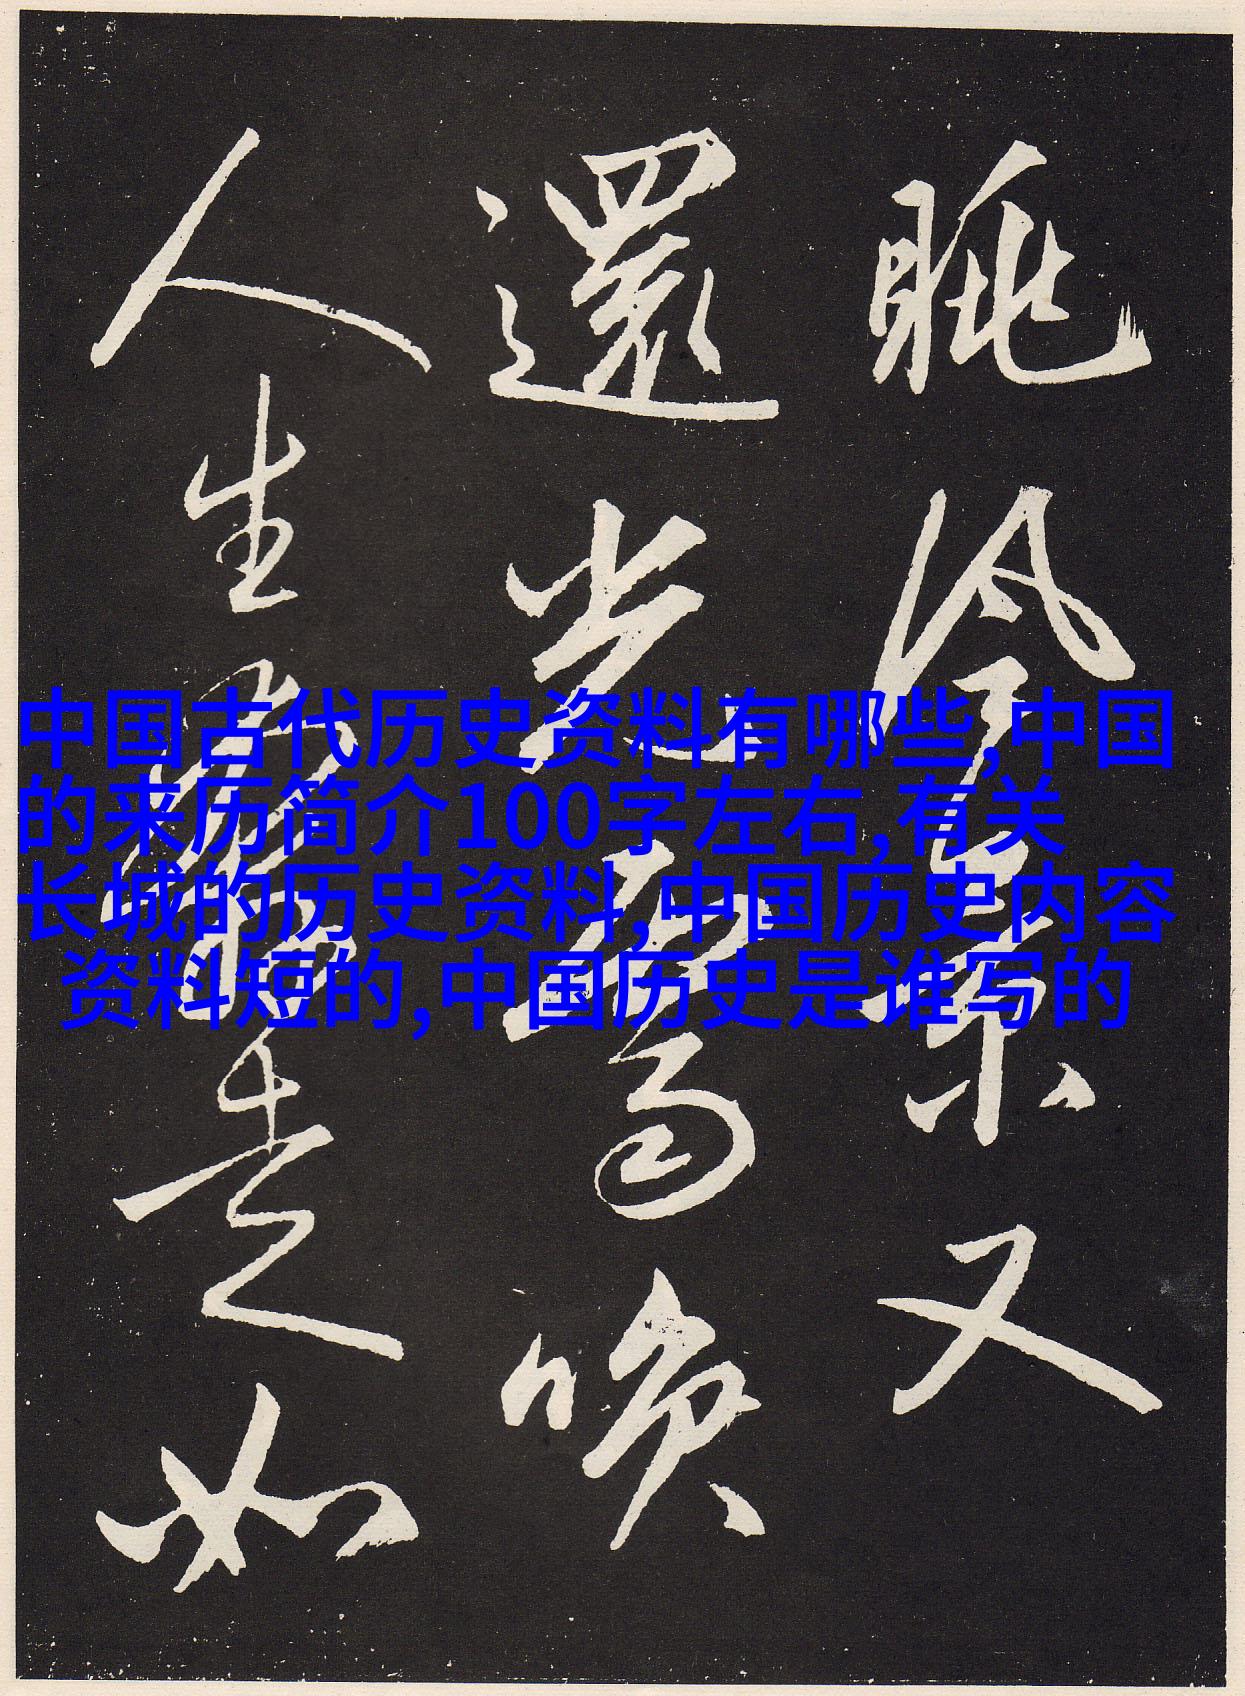 眺冷㬌又
還光高喚
人生
走如
中国古代历史资料有哪些,中国
的来历简介100字左右,有关
长城的历史资料,中国历史内容
资料短的,中国历史是谁写的